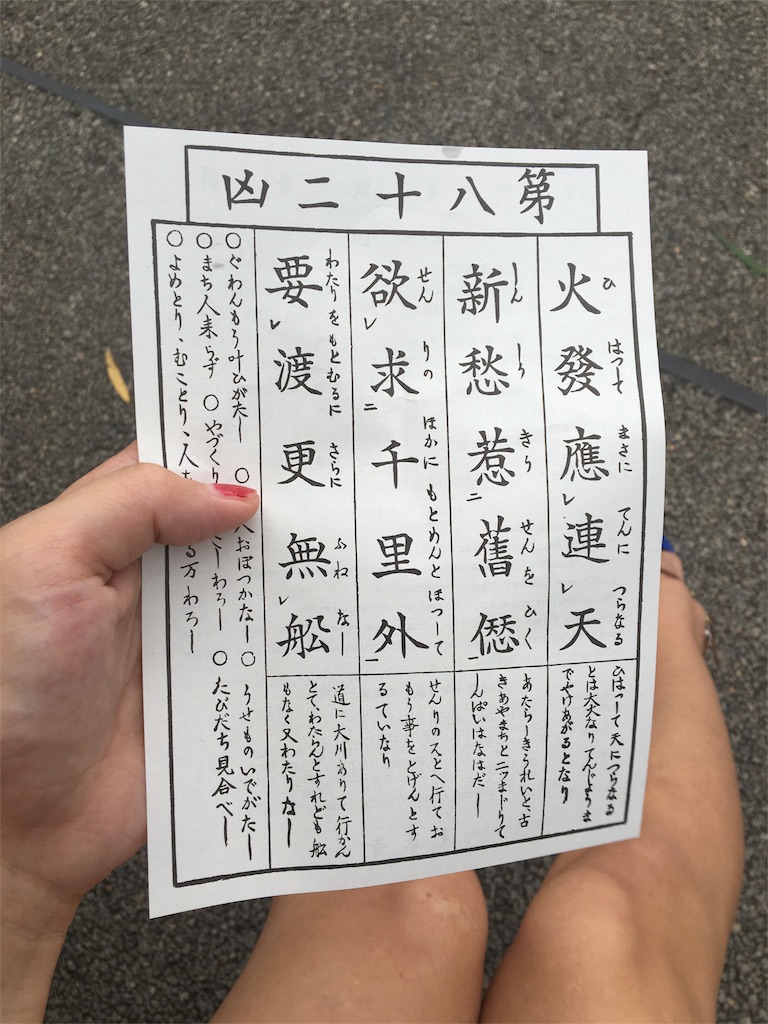 第八十二凶
ひ はつして まさに てんに つらなる
火發應レ連レ天
ひはつして天につらなる
とは大火なりてんじょうま
でやけあがるとなり
しん しう きう せんを ひく
新愁惹二舊愆一
あたらしきうれいと、古
きあやまちと二ッまじりて
しんぱいはなはだし
せん りの ほかに もとめんと ほつして
欲レ求二千里外一
せんりのそとへ行てお
もう事をとげんとす
るていなり
わたりを もとむるに さらに ふね なし
要レ渡更無レ船
道に大川ありて行かん
とて、わたらんとすれども船
もなく又わたりなし
○ぐわんもう叶ひがたし ○ 人おぼつかなし ○うせものいでがたし
○まち人来らず ○やづくり こしわろし ○たびだち見合べし
○よめとり、むことり、人を る万わろし